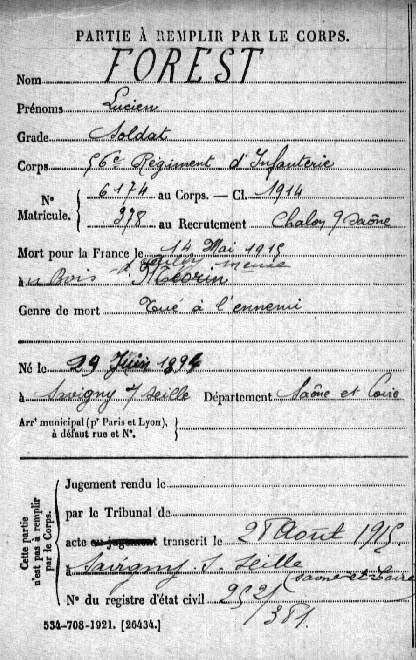 PARTIE À REMPLIR PAR LE CORPS.
Nom FOREST
Prénoms Lucien
Grade Soldat
Corps 56e Régiment d'Infanterie
N° Matricule. { 6174 au Corps. — Cl. 1914
378 au Recrutement Chalon s/ Saône
Mort pour la France le 14 Mai 1915
à au Bois Meuse
Genre de mort Tué à l'ennemi
Né le 29 Juin 1894
à Savigny s/ Seille Département Saône et Loire
Arrᵗ municipal (pʳ Paris et Lyon), à défaut rue et N°. }
Cette partie n'est pas à remplir par le Corps.
Jugement rendu le
par le Tribunal de
acte ou jugement transcrit le 28 Août 1915
à Savigny s. Seille (Saône et Loire)
N° du registre d'état civil
/381
534-708-1921. [26434.]